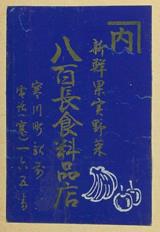 内
新鮮果実野菜
八百長食料品店
寒川町駅前
電話(寒)一六五番